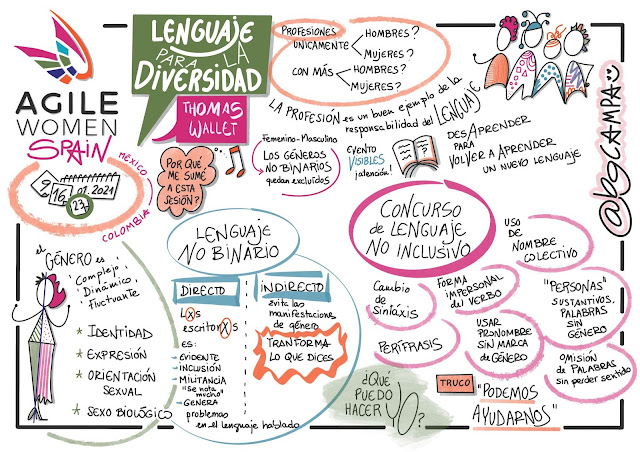 AGILE
WOMEN
SPAIN
MÉXICO
COLOMBIA
9 16 23 01.2021
LENGUAJE
PARA LA
DIVERSIDAD
THOMAS
WALLET
POR QUÉ
ME SUMÉ
A ESTA
SESIÓN?
PROFESIONES
ÚNICAMENTE
HOMBRES?
MUJERES?
CON MÁS
HOMBRES?
MUJERES?
LA PROFESIÓN es un buen ejemplo de la
responsabilidad del LENGUAJE
Femenino-Masculino
LOS GÉNEROS
NO BINARIOS
quedan excluídos
EVENTO
VISIBLES
¡atención!
DESAPRENDER
PARA
VOLVER A APRENDER
UN NUEVO LENGUAJE
@bgcampa
el
GÉNERO es
Complejo
Dinámico
Fluctuante
* IDENTIDAD
* EXPRESIÓN
* ORIENTACIÓN
SEXUAL
* SEXO BIOLÓGICO
LENGUAJE
NO BINARIO
DIRECTO
LXs
escritorXs
es:
- EVIDENTE
- INCLUSIÓN
- MILITANCIA
"Se nota
mucho"
- GENERA
problemas
en el lenguaje hablado
INDIRECTO
evita las
manifestaciones
de género
TRANFORMA
LO QUE DICES
CONCURSO
de LENGUAJE
NO INCLUSIVO
Cambio
de
Sintáxis
FORMA
IMPERSONAL
del VERBO
USO
DE
NOMBRE
COLECTIVO
PERÍFRASIS
USAR
PRONOMBRE
SIN MARCA
de GÉNERO
"PERSONAS"
SUSTANTIVOS.
PALABRAS
SIN
GÉNERO
OMISIÓN
DE PALABRAS
sin perder sentido
¿QUÉ
PUEDO
HACER
YO?
TRUCO
"PODEMOS
AYUDARNOS"